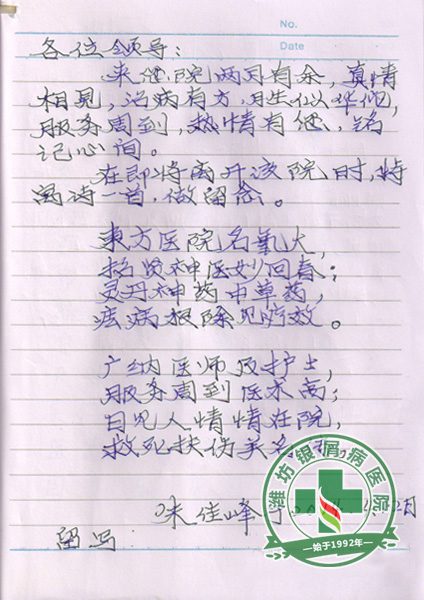 No.
Date
各位领导:
来您院两月有余,真情
相见,治病有方,月生似华佗,
服务周到,热情有他,铭
记心间。
在即将离开该院时,特
写诗一首,做留念。
东方医院名气大,
招贤神医妙回春;
灵丹神药中草药,
疾病根除见疗效。
广纳医师及护士,
服务周到医术高;
日见人情情在院,
救死扶伤美名
朱佳峰
月
留写:
潍坊银屑病医院
始于1992年